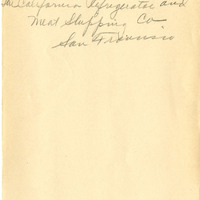 The California Refrigerator and
Meat Shipping Co
San Francisco